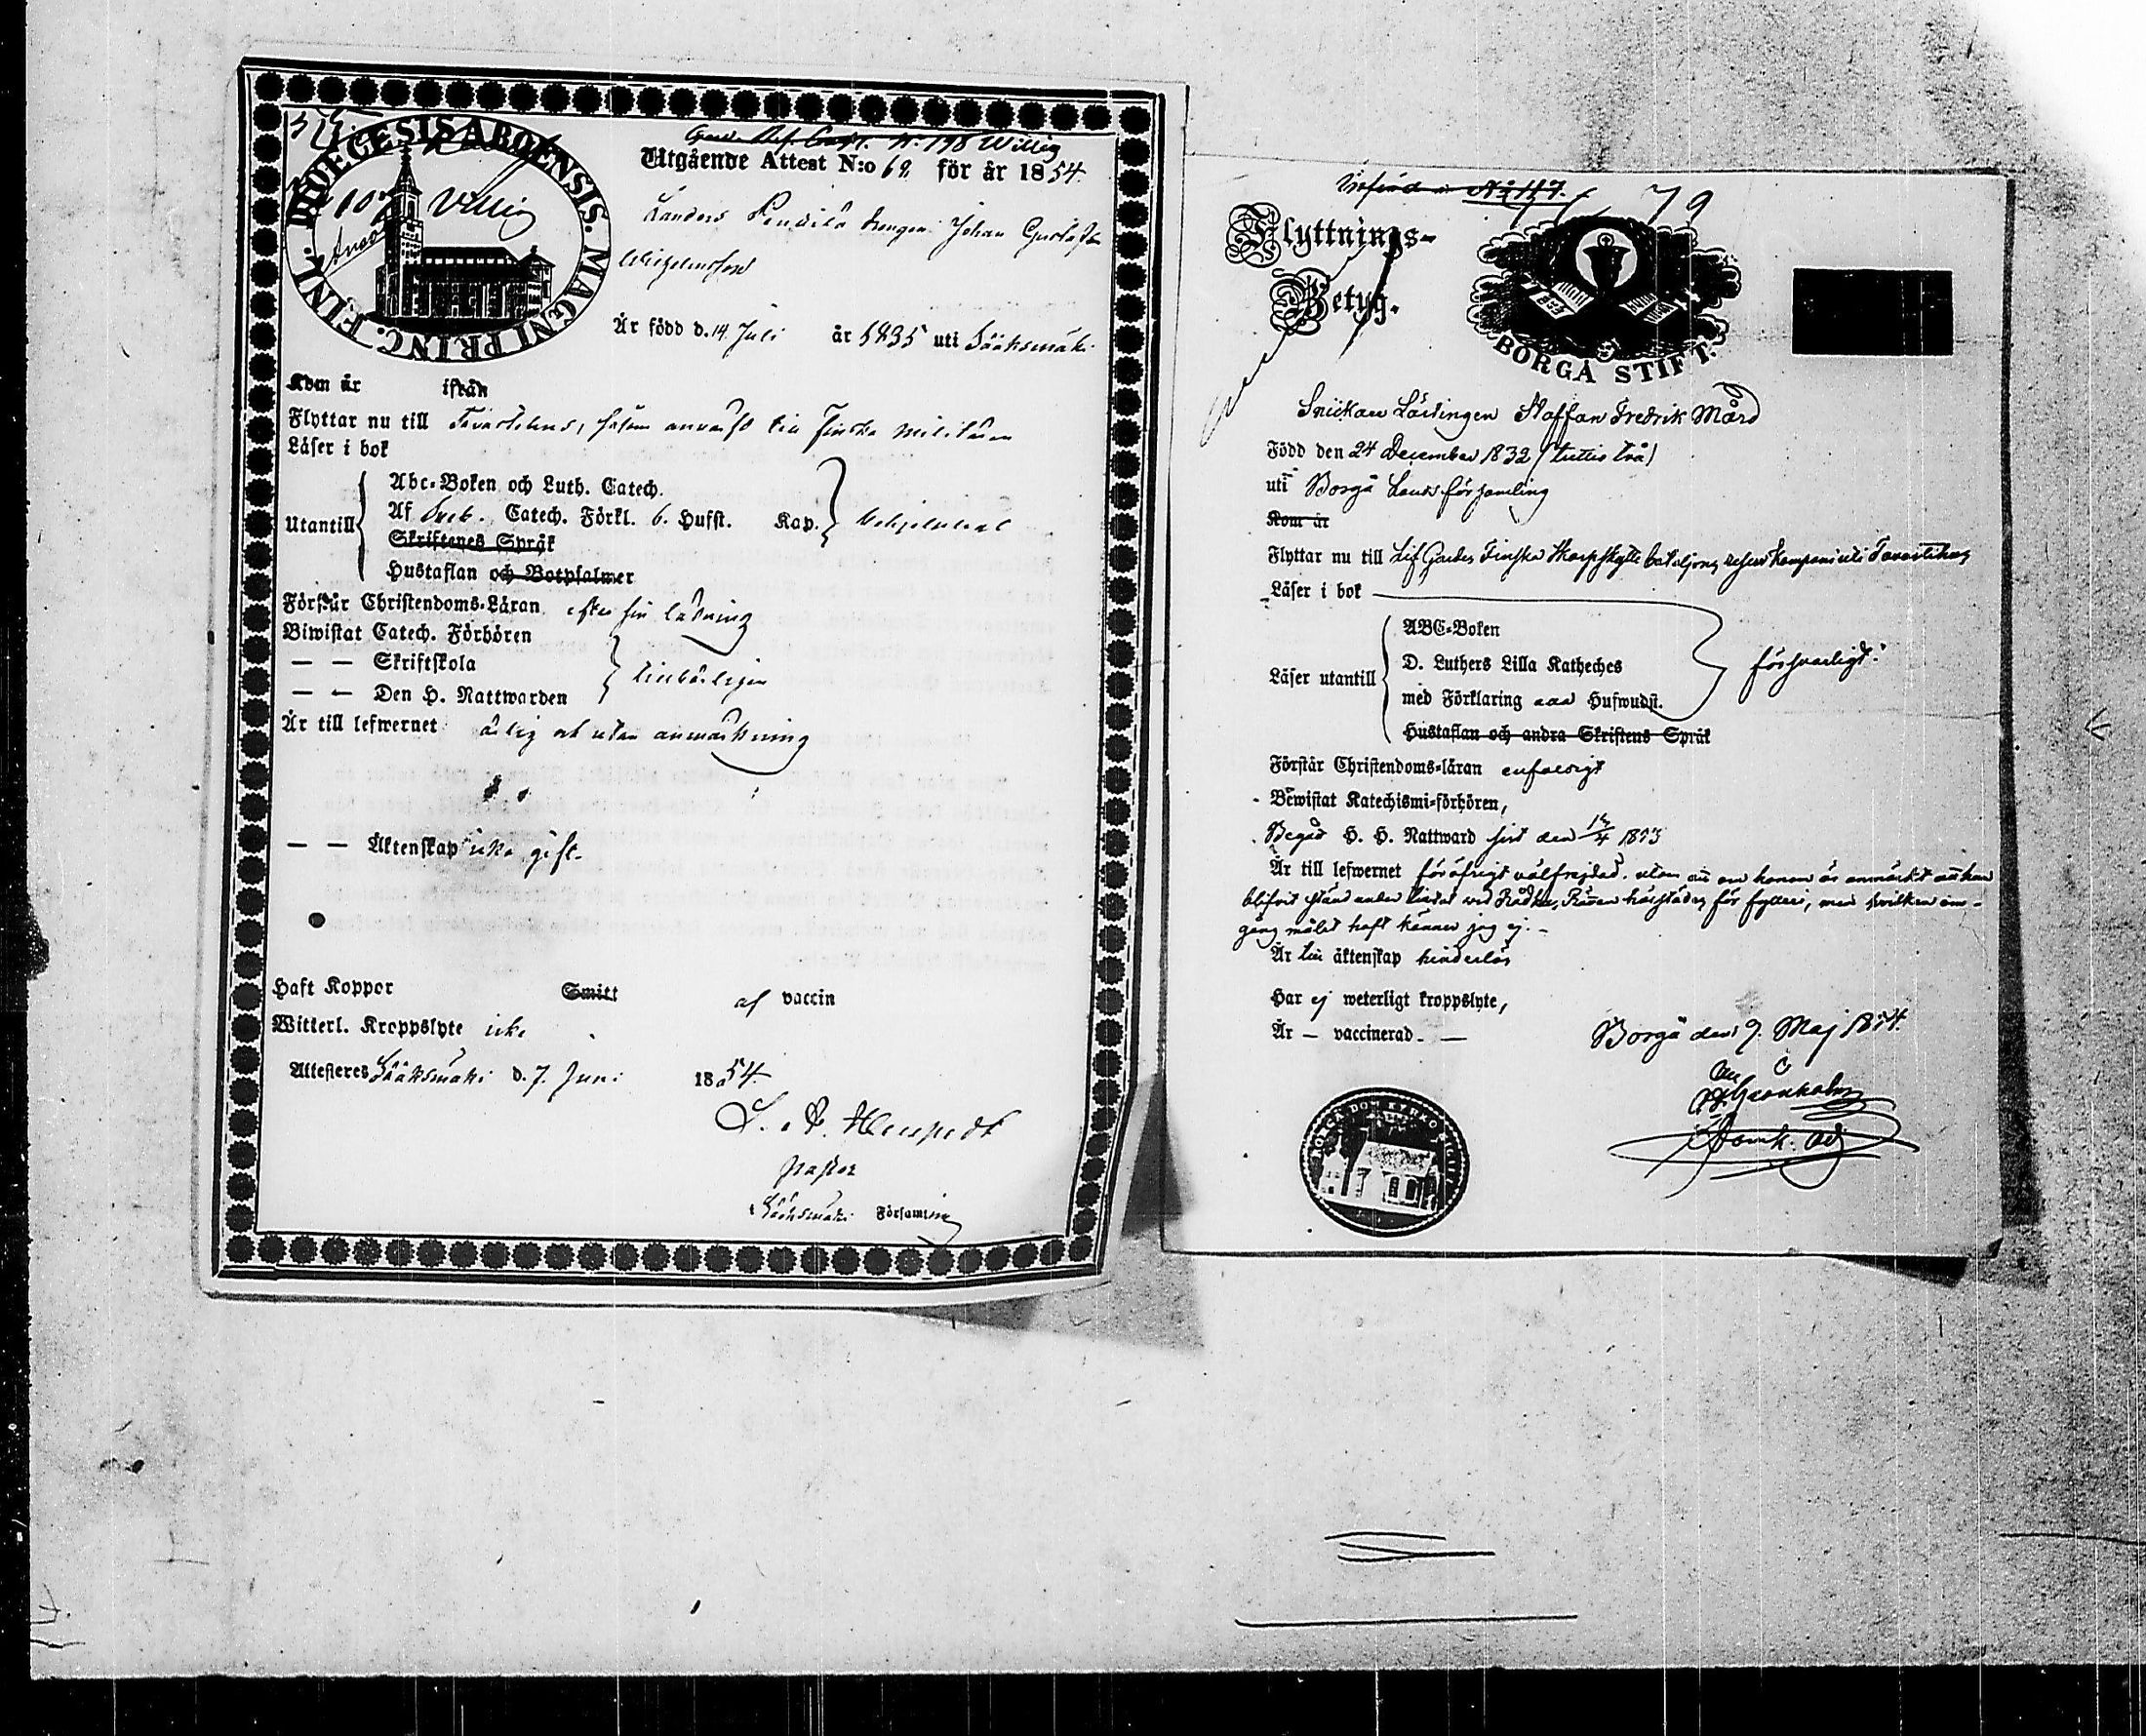 DIOECESIS ABOENSIS. MAGNI PRINC. FINL.
107 Willig
N:o 198 Willig
Utgående Attest N:o 62 för år 1854.
Johan Gustaf
Wilhelmsson
Är född d. 14 Juli år 1835 uti Sääksmäki
Kom år ifrån
Flyttar nu till Tavastehus, såsom till Finska Militären
Läser i bok
Abc-Boken och Luth. Catech.
Utantill Af Catech. Förkl. 6. Hufst. Kap.
Skriftenes Språk
Hustaflan och Botpsalmer
Förstår Christendoms-Läran efter sin läsning
Biwistat Catech. Förhören
— — Skriftskola
— — Den H. Nattwarden
tillbörligen
Är till lefwernet ärlig och utan anmärkning
— — Äktenskap icke gift.
Haft Koppor Smitt af vaccin
Witterl. Kroppslyte icke
Attesteres Sääksmäki d. 7. Juni 1854.
pastor
Sääksmäki Församling
Införd N:o 117.
79
Flyttnings-
Betyg.
BORGÅ STIFT.
Snickare Lärlingen Staffan Fredrik Mård
Född den 24 December 1832 (trettio två)
uti Borgå Lands församling
Kom år
Flyttar nu till Lif Gardes Finska Skarpskytte bataljons Kompani uti Tavastehus
Läser i bok
ABC-Boken
D. Luthers Lilla Katheches
Läser utantill
med Förklaring Hufwudst.
försvarligt.
Hustaflan och andra Skriftens Språk
Förstår Christendoms-läran enfaldigt
Bewistat Katechismi-förhören,
Begåt H. H. Nattward sist den 1853
Är till lefwernet för öfrigt välfrejdad, utom att om honom är anmärkt att han
blifvit stånd under vid Rådhus Rätten härstädes för fylleri, men hvilken om-
gång målet haft känner jag ej. -
Är till äktenskap hinderlös
Har ej weterligt kroppslyte,
Är — vaccinerad. —
Borgå den 9. Maj 1854.